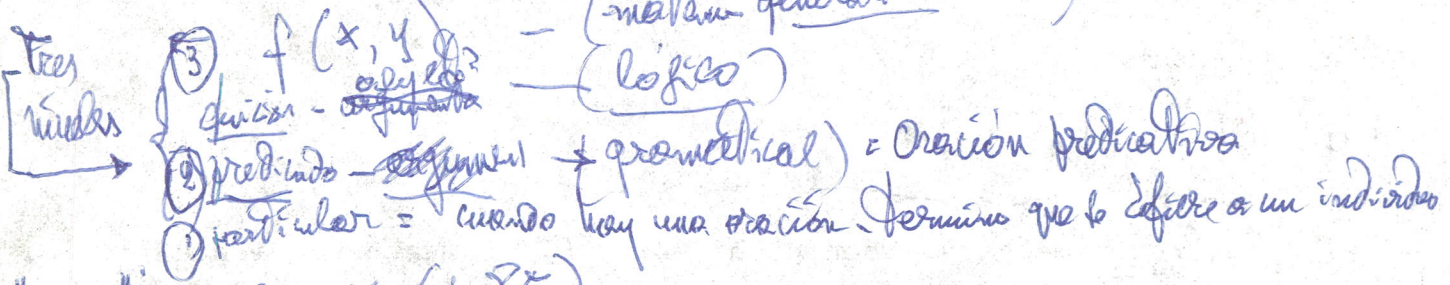 Tres niveles
③ f (x, y) — (matem general
función - objeto? — (lógico)
② predicado - → gramatical) = Oración predicativa
① particular = cuando hay una oración. Termino que se refiere a un individuo